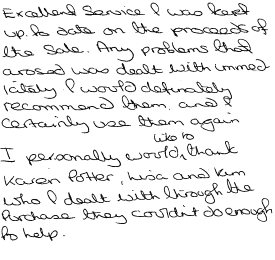 Excellent Service I was kept
up to date on the proceeds of
the Sale. Any problems that
arosed was dealt with immed
iately I would definately
recommend them, and I
certainly use them again
like to
I personally would, thank
Karen Potter, Lisa and Kim
who I dealt with through the
Purchase they couldn't do enough
to help.